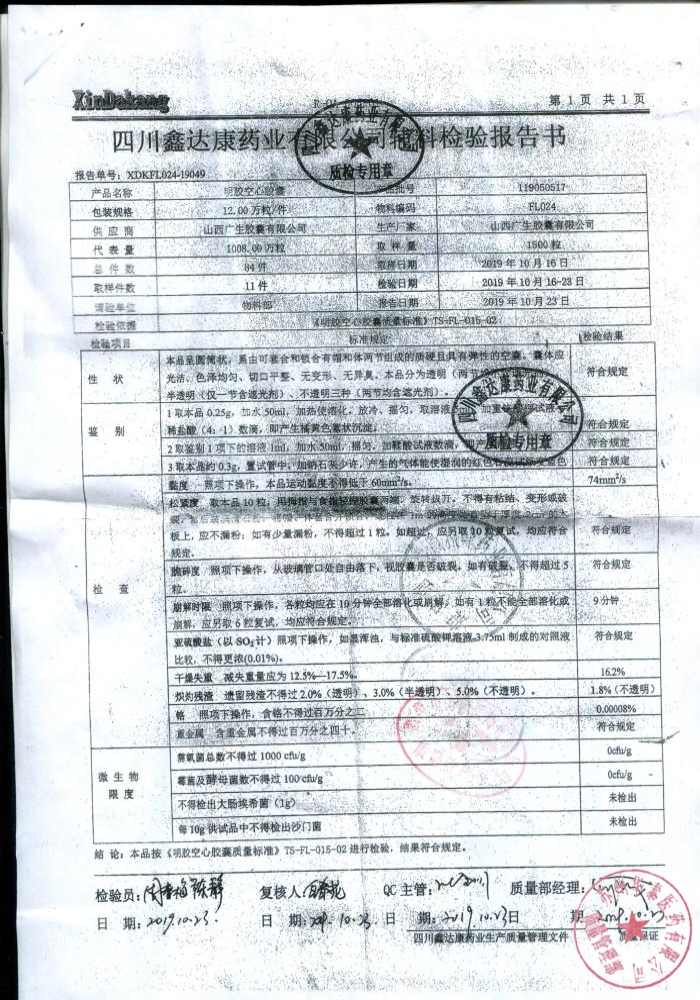 XinDakang
第 1 页 共 1 页
四川鑫达康药业有限公司辅料检验报告书
质检专用章
报告单号：XDKFL024-19049
产品名称 明胶空心胶囊 批号 119050517
包装规格 12.00 万粒/件 物料编码 FL024
供应商 山西广生胶囊有限公司 生产厂家 山西广生胶囊有限公司
代表量 1008.00 万粒 取样量 1500 粒
总件数 84 件 取样日期 2019 年 10 月 16 日
取样件数 11 件 检验日期 2019 年 10 月 16-23 日
请验单位 物料部 报告日期 2019 年 10 月 23 日
检验依据 《明胶空心胶囊质量标准》TS-FL-015-02
检验项目 标准规定 检验结果
本品呈圆筒状，系由可套合和锁合有帽和体两节组成的质硬且具有弹性的空囊。囊体应
性 状 光洁、色泽均匀、切口平整、无变形、无异臭。本品分为透明（两节 符合规定
半透明（仅一节含遮光剂）、不透明三种（两节均含遮光剂）。
四川鑫达康药业有限公司
质检专用章
1 取本品 0.25g，加水 50ml，加热使溶化，放冷，摇匀，取溶液
鉴 别 稀盐酸（4：1）数滴，即产生橘黄色絮状沉淀。 符合规定
2 取鉴别 1 项下的溶液 1ml，加水 50ml，摇匀，加鞣酸试液数滴， 符合规定
3 取本品约 0.3g，置试管中，加钠石灰少许，产生的气体能使湿润的红色石蕊试纸变蓝色 符合规定
检 查
黏度 照项下操作，本品运动黏度不得低于 60mm²/s。 74mm²/s
松紧度 取本品 10 粒，用拇指与食指轻捏胶囊两端，旋转拔开，不得有粘结、变形或破
板上，应不漏粉；如有少量漏粉，不得超过 1 粒。如超过，应另取 10 粒复试，均应符合 符合规定
规定。
脆碎度 照项下操作，从玻璃管口处自由落下，视胶囊是否破裂，如有破裂，不得超过 5 符合规定
粒。
崩解时限 照项下操作，各粒均应在 10 分钟全部溶化或崩解，如有 1 粒不能全部溶化或 9 分钟
崩解，应另取 6 粒复试，均应符合规定。
亚硫酸盐（以 SO₂计）照项下操作，如显浑浊，与标准硫酸钾溶液 3.75ml 制成的对照液 符合规定
比较，不得更浓(0.01%)。
干燥失重 减失重量应为 12.5%—17.5%。 16.2%
炽灼残渣 遗留残渣不得过 2.0%（透明）、3.0%（半透明）、5.0%（不透明）。 1.8%（不透明）
铬 照项下操作，含铬不得过百万分之二 0.00008%
重金属 含重金属不得过百万分之四十。 符合规定
微生物限度
需氧菌总数不得过 1000 cfu/g 0cfu/g
霉菌及酵母菌数不得过 100 cfu/g 0cfu/g
不得检出大肠埃希菌（1g） 未检出
每 10g 供试品中不得检出沙门菌 未检出
结 论：本品按《明胶空心胶囊质量标准》TS-FL-015-02 进行检验，结果符合规定。
检验员： 复核人： QC 主管： 质量部经理：
日 期：2019.10.23. 日 期：2019.10.23 日 期：2019.10.23 日 期：2019.10.23
四川鑫达康药业生产质量管理文件 质量保证